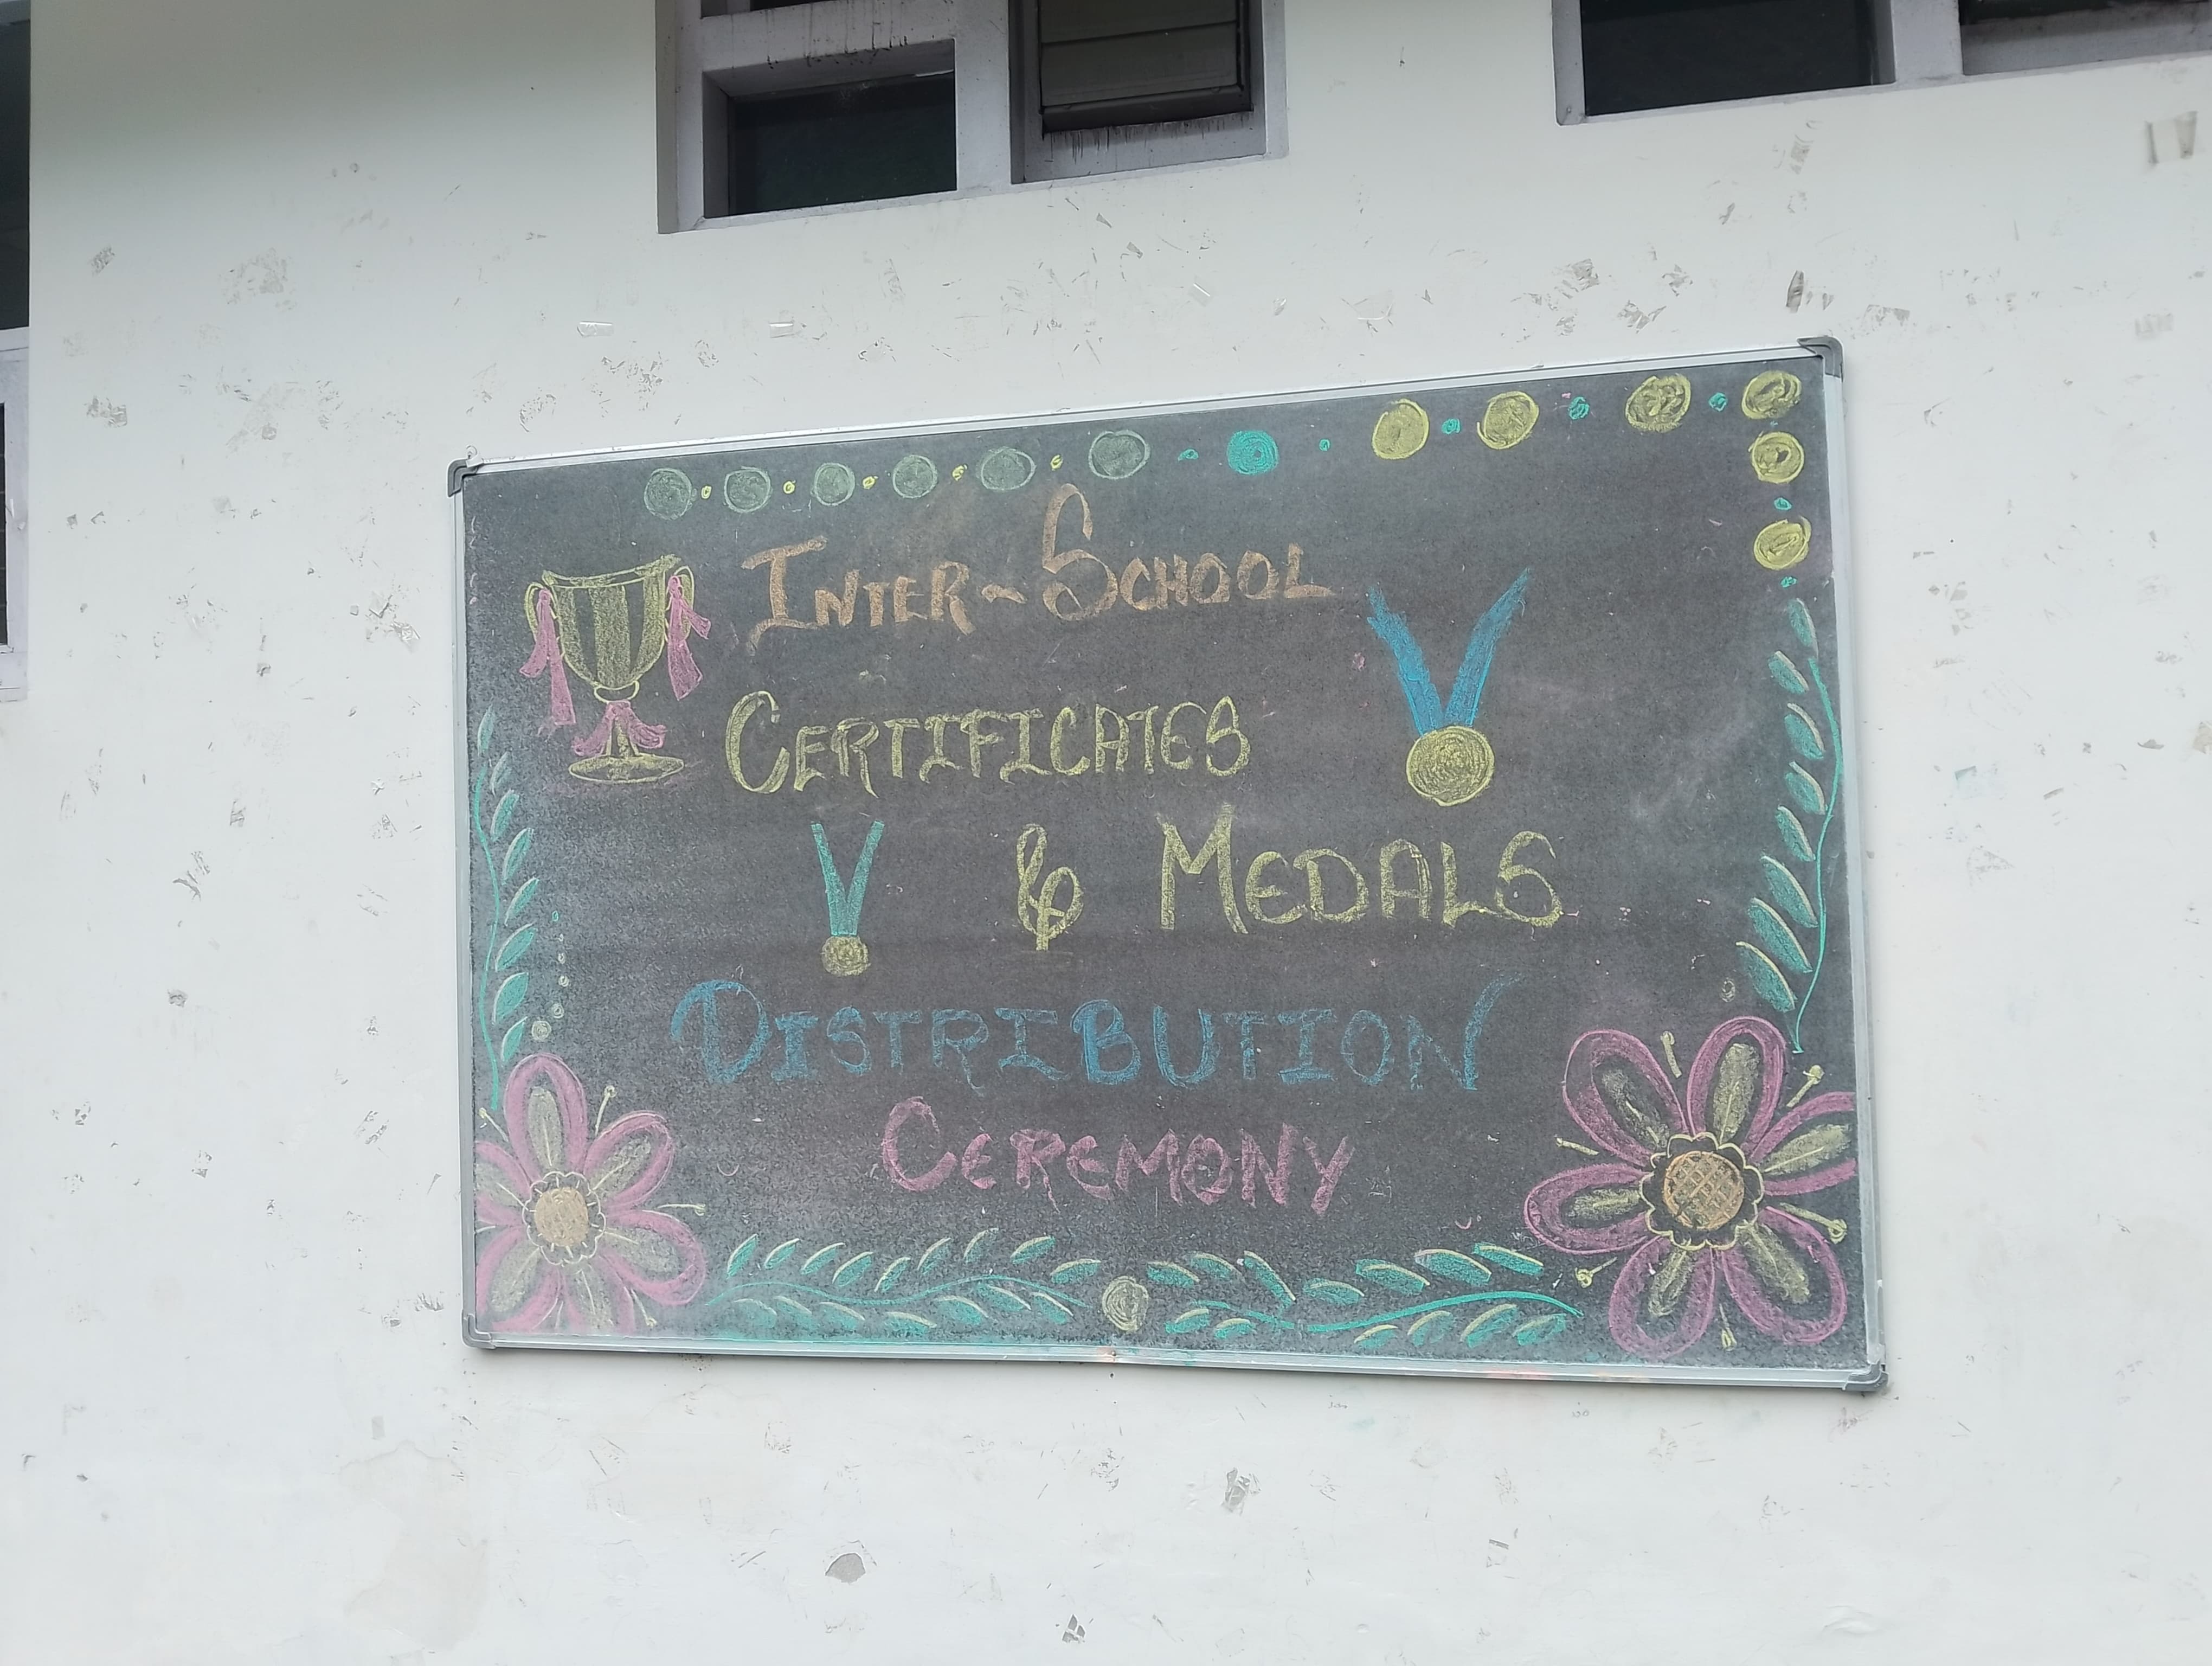 INTER-SCHOOL
CERTIFICATES
& MEDALS
DISTRIBUTION
CEREMONY